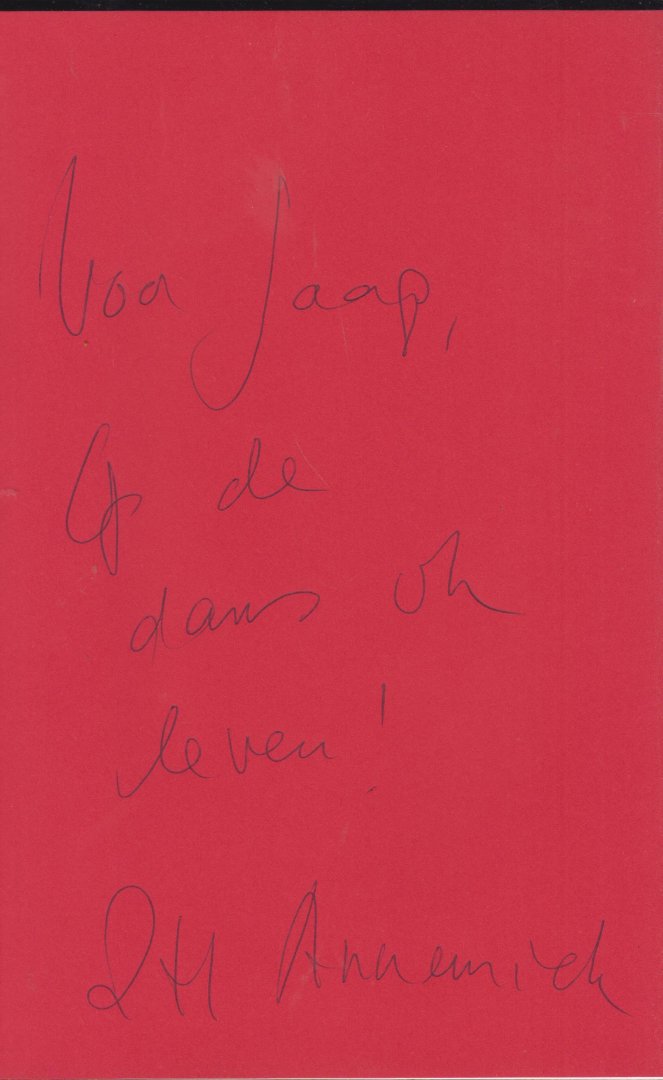 Voor Jaap,
Op de
dans vh
leven!
Annemiek